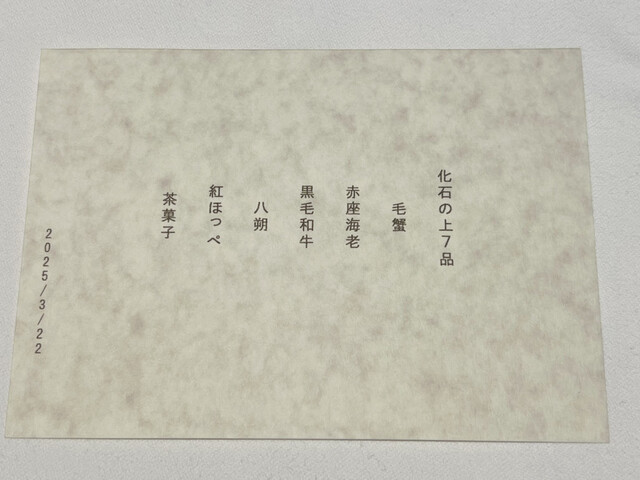 化石の上7品
毛蟹
赤座海老
黒毛和牛
八朔
紅ほっぺ
茶菓子
2025/3/22